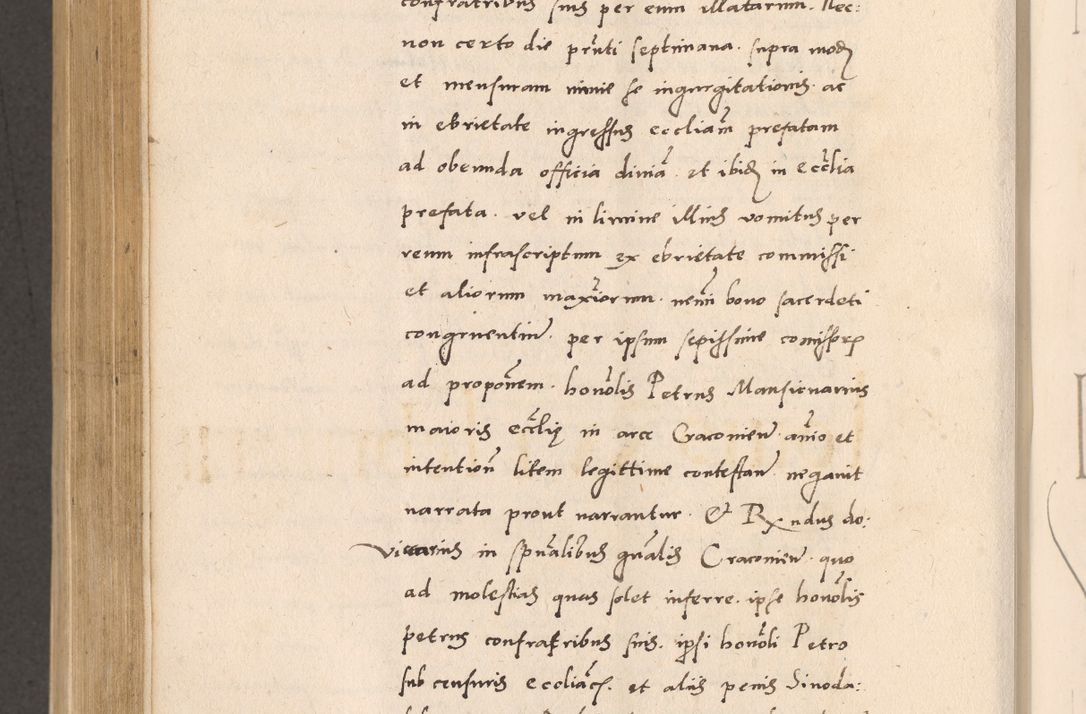 confratribus suis per eum illatarum. Nec:
non certo die prñti septimana. supra modũ
et mensuram nimie se ingurgitationis. ac
in ebrietate ingressus eccliam̃ prefatam
ad obeunda officia diuiã. et ibidẽ in ecc̃lia
prefata. vel in limine illius vomitus per
reum infrascriptum ex ebrietate commissi
et aliorum max̃iorum. nemĩ bono sacerdoti
congruentiũ. per ipsum sepissime comissorum
ad propoñem. honor̃lis Petrus Mansionarius
maioris ecc̃lię in arce Cracouień. añio et
intentioñ litem legittime contestań. negauit
narrata prout narrantur. Et Rx̃ndus do:
Vicarius in spũalibus gñalis Cracouień. quo
ad molestias quas solet inferre. ipse honor̃lis
petrus confratribus suis. ipsi honor̃li Petro
sub censuris eccliac̃s. et aliis penis Sinoda: